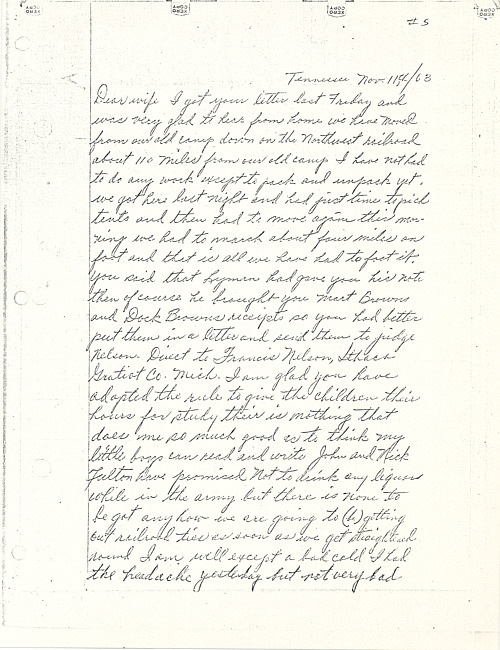 # 5
Tennessee Nov. 11th/63
Dear wife I got your letter last Friday and
was very glad to hear from home we have moved
from our old camp down on the Northwest railroad
about 110 miles from our old camp I have not had
to do any work except to pack and unpack yet.
we got here last night and had just time to pich
tents and then had to move again this mor-
ning we had to march about four miles on
foot and that is all we have had to foot it.
you said that Lyman had gave you his note
then of course he brought you Mart Browns
and Dock Browns receipts so you had better
put them in a letter and send them to judge
Nelson. Direct to Francis Nelson, Ithaca
Gratiot Co. Mich. I am glad you have
adapted the rule to give the children their
hours for study their is nothing that
does me so much good as to think my
little boys can read and write John and Nick
Fulton have promised not to drink any liquor
while in the army but there is none to
be got any how we are going to (h) getting
out railroad ties as soon as we get
round I am well except a bad cold I had
the headache yesterday but not very bad